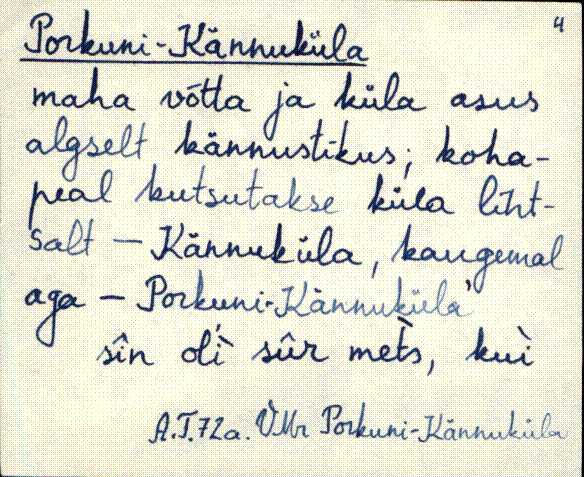 4
Porkuni-Kännuküla
maha võtta ja küla asus
algselt kännustikus; koha-
peal kutsutakse küla liht-
salt – Kännuküla, kaugemal
aga – Porkuni-Kännuküla
sîn oli sûr mets, kui
A.T.72a. VMr Porkuni-Kännuküla